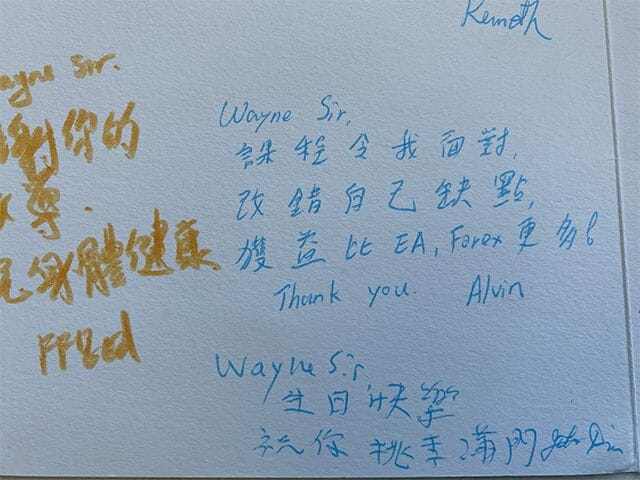 ayne Sir.
謝你的
導.
身體健康
Wayne Sir,
課程令我面對,
改錯自己缺點,
獲益比 EA, Forex 更多!
Thank you. Alvin
Wayne Sir
生日快樂
祝你 桃李滿門